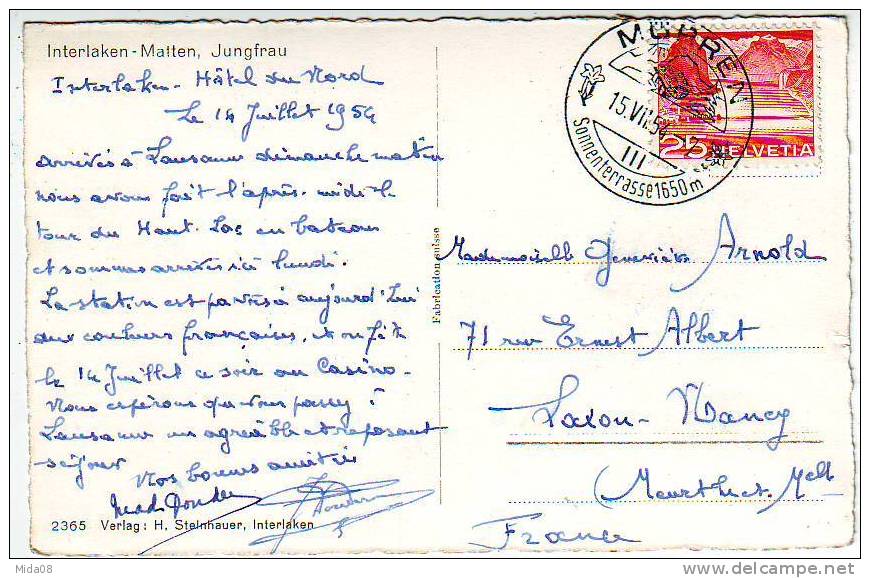 Interlaken - Matten, Jungfrau
Interlaken - Hôtel du Nord
Le 14 Juillet 1954
arrivés à Lausanne dimanche matin
nous avons fait l'après-midi le
tour du Haut-Lac en bateau
et sommes arrivés ici lundi.
La station est pavoisée aujourd'hui
aux couleurs françaises, et on fête
le 14 Juillet ce soir au Casino.
Nous espérons que vous passez à
Lausanne un agréable et reposant
séjour
Nos bonnes amitiés
2365 Verlag: H. Steinhauer, Interlaken
Fabrication suisse
MÜRREN
15.VII.54
III
Sonnenterrasse 1650 m
25 HELVETIA
Mademoiselle Geneviève Arnold
71 rue Ernest Albert
Laxou - Nancy
(Meurthe et Mlle
France
Mida08
delcampe.net